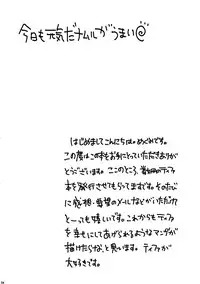 今日も元気だナムルがうまい@
はじめましてこんにちは。めぐみです。
この度はこの本をお手にとっていただきありが
とうございます。ここのところ、普段のティファ
本を発行させてもらってますです。そのたびに
感想・希望のメールなどがいただけて
とーっても嬉しいです。これからもティファ
を幸せにしてあげられるようなマンガが
描けたらな、と思います。ティファが
大好きです。